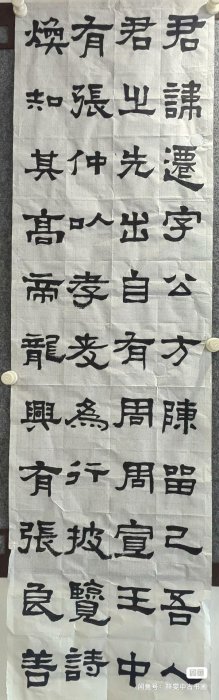 君諱遷字公方陳留己吾人
君之先出自有周周宣王中
有張仲以孝友為行披覽詩
煥知其高帝龍興有張良善
闲鱼号：